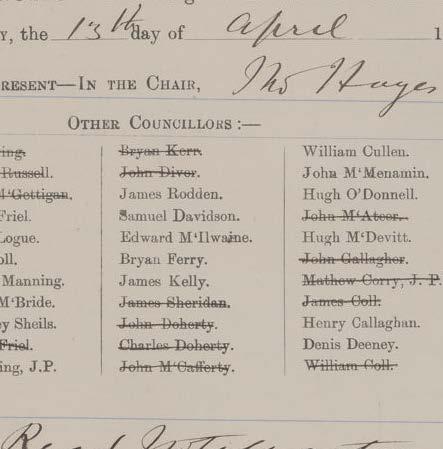 Y, the 13th day of April 1
RESENT—IN THE CHAIR, Tho Hayes
OTHER COUNCILLORS :—
ing.
Russell.
M'Gettigan.
Friel.
Logue.
oll.
Manning.
M'Bride.
ey Sheils.
Friel.
ing, J.P.
Bryan Kerr.
John Diver.
James Rodden.
Samuel Davidson.
Edward M'Ilwaine.
Bryan Ferry.
James Kelly.
James Sheridan.
John Doherty.
Charles Doherty.
John M'Cafferty.
William Cullen.
John M'Menamin.
Hugh O'Donnell.
John M'Ateer.
Hugh M'Devitt.
John Gallagher.
Mathew Corry, J. P.
James Coll.
Henry Callaghan.
Denis Deeney.
William Coll.
Read